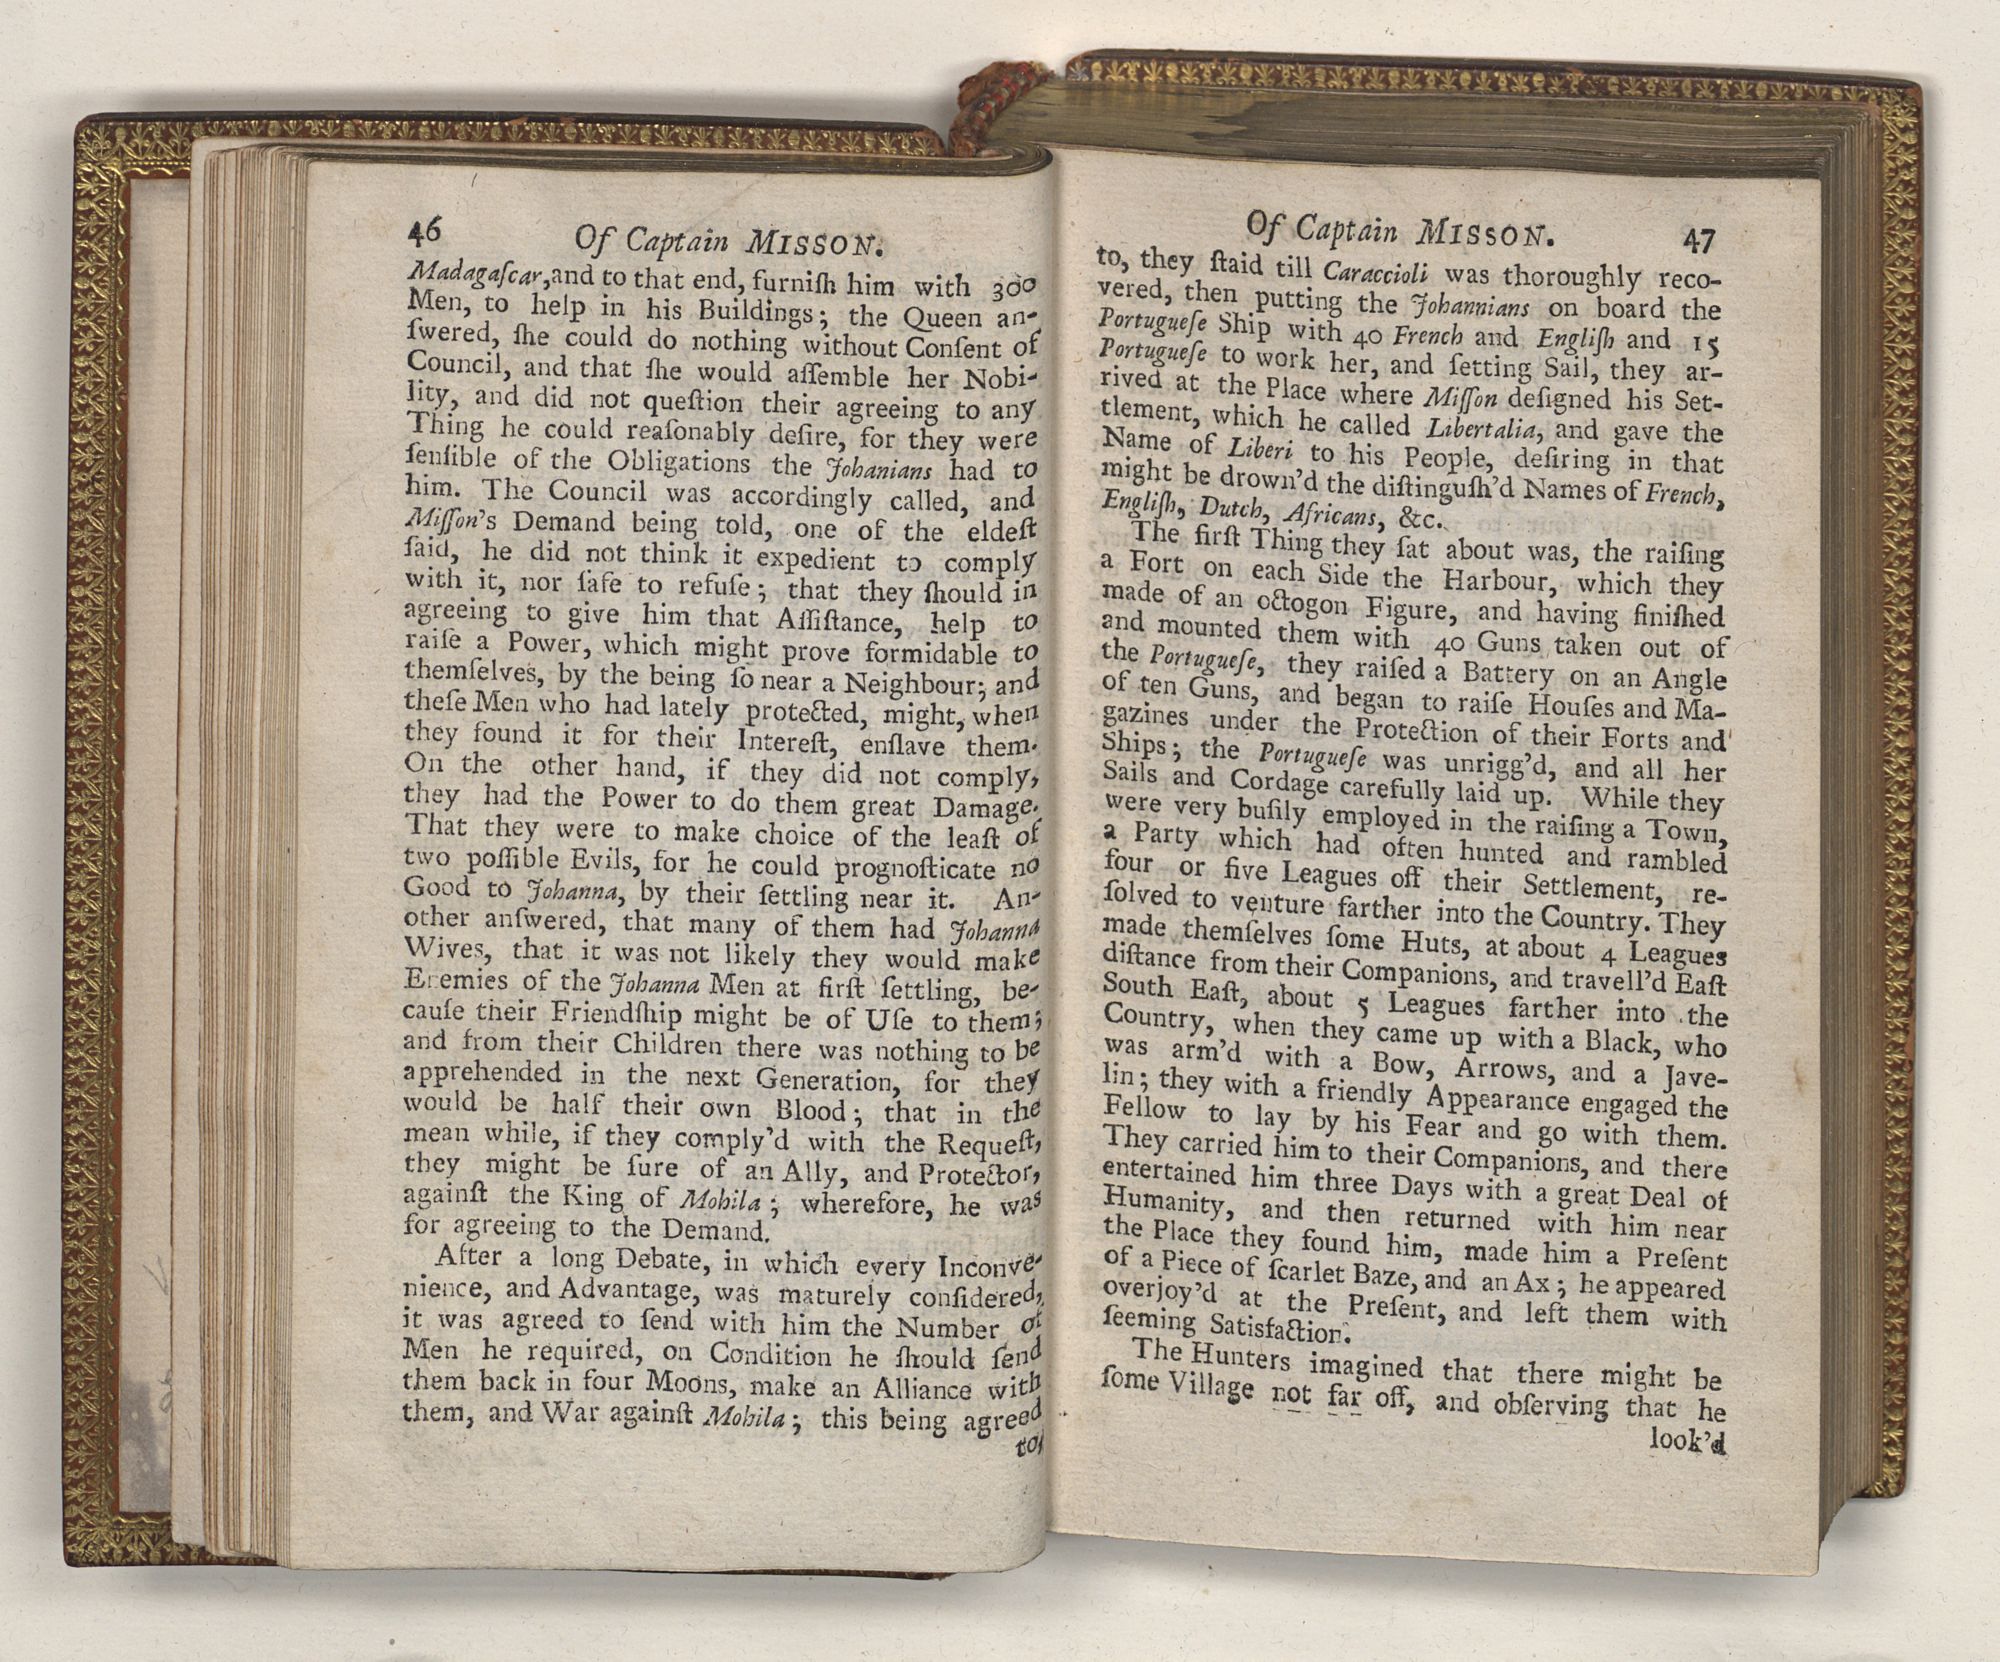 46
Of Captain MISSON.
Madagaſcar,and to that end, furniſh him with 300
Men, to help in his Buildings; the Queen an-
ſwered, ſhe could do nothing without Conſent of
Council, and that ſhe would aſſemble her Nobi-
lity, and did not queſtion their agreeing to any
Thing he could reaſonably deſire, for they were
ſenſible of the Obligations the Johanians had to
him. The Council was accordingly called, and
Miſſon's Demand being told, one of the eldeſt
ſaid, he did not think it expedient to comply
with it, nor ſafe to refuſe; that they ſhould in
agreeing to give him that Aſſiſtance, help to
raiſe a Power, which might prove formidable to
themſelves, by the being ſo near a Neighbour; and
theſe Men who had lately protected, might, when
they found it for their Intereſt, enſlave them.
On the other hand, if they did not comply,
they had the Power to do them great Damage.
That they were to make choice of the leaſt of
two poſſible Evils, for he could prognoſticate no
Good to Johanna, by their ſettling near it. An-
other anſwered, that many of them had Johanna
Wives, that it was not likely they would make
Enemies of the Johanna Men at firſt ſettling, be-
cauſe their Friendſhip might be of Uſe to them;
and from their Children there was nothing to be
apprehended in the next Generation, for they
would be half their own Blood; that in the
mean while, if they comply'd with the Requeſt,
they might be ſure of an Ally, and Protector,
againſt the King of Mohila; wherefore, he was
for agreeing to the Demand.
After a long Debate, in which every Inconve-
nience, and Advantage, was maturely conſidered,
it was agreed to ſend with him the Number of
Men he required, on Condition he ſhould ſend
them back in four Moons, make an Alliance with
them, and War againſt Mohila; this being agreed
to,
Of Captain MISSON.
47
to, they ſtaid till Caraccioli was thoroughly reco-
vered, then putting the Johannians on board the
Portugueſe Ship with 40 French and Engliſh and 15
Portugueſe to work her, and ſetting Sail, they ar-
rived at the Place where Miſſon deſigned his Set-
tlement, which he called Libertalia, and gave the
Name of Liberi to his People, deſiring in that
might be drown'd the diſtinguſh'd Names of French,
Engliſh, Dutch, Africans, &c.
The firſt Thing they ſat about was, the raiſing
a Fort on each Side the Harbour, which they
made of an octogon Figure, and having finiſhed
and mounted them with 40 Guns taken out of
the Portugueſe, they raiſed a Battery on an Angle
of ten Guns, and began to raiſe Houſes and Ma-
gazines under the Protection of their Forts and
Ships; the Portugueſe was unrigg'd, and all her
Sails and Cordage carefully laid up. While they
were very buſily employed in the raiſing a Town,
a Party which had often hunted and rambled
four or five Leagues off their Settlement, re-
ſolved to venture farther into the Country. They
made themſelves ſome Huts, at about 4 Leagues
diſtance from their Companions, and travell'd Eaſt
South Eaſt, about 5 Leagues farther into the
Country, when they came up with a Black, who
was arm'd with a Bow, Arrows, and a Jave-
lin; they with a friendly Appearance engaged the
Fellow to lay by his Fear and go with them.
They carried him to their Companions, and there
entertained him three Days with a great Deal of
Humanity, and then returned with him near
the Place they found him, made him a Preſent
of a Piece of ſcarlet Baze, and an Ax; he appeared
overjoy'd at the Preſent, and left them with
ſeeming Satisfaction.
The Hunters imagined that there might be
ſome Village not far off, and obſerving that he
look'd